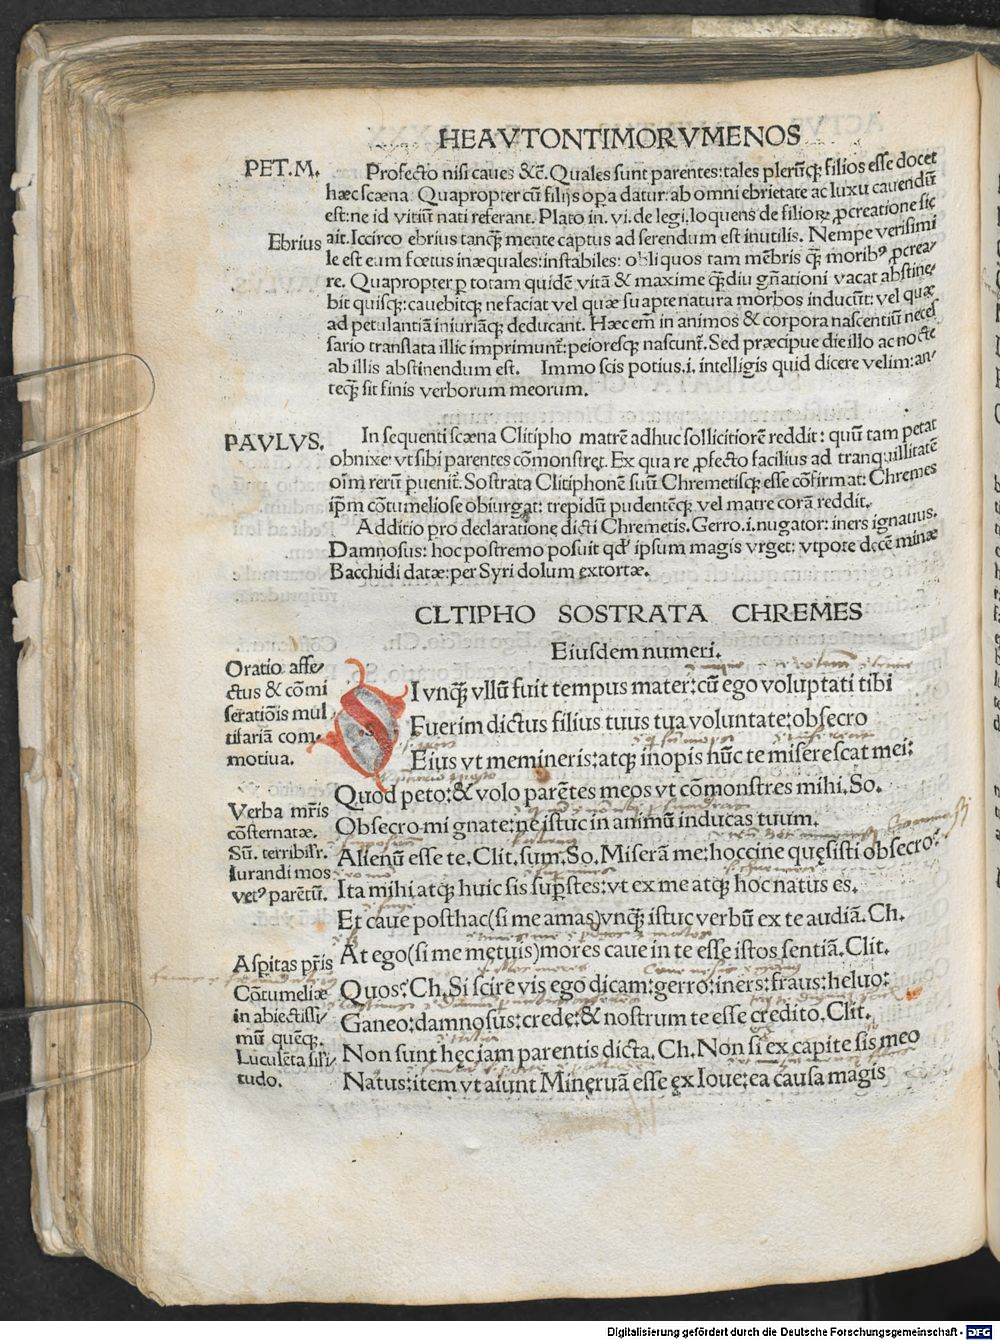 HEAVTONTIMORVMENOS
PET.M.
Profecto nisi caues &c̄. Quales sunt parentes: tales plerūq; filios esse docet
hæc scæna. Quapropter cū filijs opa datur: ab omni ebrietate ac luxu cauendū
est: ne id vitiū nati referant. Plato in. vi. de legi. loquens de filioꝝ ꝓcreatione sic
Ebrius
ait. Iccirco ebrius tanq̄ mente captus ad serendum est inutilis. Nempe verisimi
le est eum fœtus inæquales: instabiles: obliquos tam mēbris q̄ moribꝰ ꝓcrea/
re. Quapropter p totam quidē vitā & maxime q̄diu gn̄ationi vacat abstine/
bit quisq;: cauebitq; ne faciat vel quæ suapte natura morbos inducūt: vel quæ
ad petulantiā iniuriāq; deducant. Hæc em̄ in animos & corpora nascentiū neces
sario translata illic imprimunt: peioresq; nascunt̄. Sed præcipue die illo ac nocte
ab illis abstinendum est. Immo scis potius.i. intelligis quid dicere velim: an/
teq̄ sit finis verborum meorum.
PAVLVS.
In sequenti scæna Clitipho matrē adhuc sollicitiorē reddit: quū tam petat
obnixe vt sibi parentes cōmonstret. Ex qua re ꝓfecto facilius ad tranquillitatē
oīm rerū puenit. Sostrata Clitiphonē suū Chremetisq; esse cōfirmat: Chremes
ip̄m cōtumeliose obiurgat: trepidū pudentēq; vel matre corā reddit.
Additio pro declaratione dicti Chremetis. Gerro.i. nugator: iners ignauus.
Damnosus: hoc postremo posuit qd' ipsum magis vrget: vtpote decē minæ
Bacchidi datæ: per Syri dolum extortæ.
CLTIPHO SOSTRATA CHREMES
Eiusdem numeri.
Oratio affe/
ctus & cōmi
seratiōis mul
tifariā com/
motiua.
SI vnq̄ vllū fuit tempus mater: cū ego voluptati tibi
Fuerim dictus filius tuus tua voluntate: obsecro
Eius vt memineris: atq; inopis nūc te miserescat mei:
Quod peto: & volo parētes meos vt cōmonstres mihi. So.
Verba mr̄is
cōsternatæ.
Sū. terribilr.
Iurandi mos
vetꝰ parētū.
Obsecro mi gnate: ne istuc in animū inducas tuum.
Alienū esse te. Clit. sum. So. Miserā me: hoccine quęsisti obsecro?
Ita mihi atq; huic sis sup̱stes: vt ex me atq; hoc natus es.
Et caue posthac (si me amas) vnq̄ istuc verbū ex te audiā. Ch.
Aspitas pr̄is
Cōtumeliæ
in abiectissi/
mū quenq̨.
Luculēta sili/
tudo.
At ego (si me metuis) mores caue in te esse istos sentiā. Clit.
Quos? Ch. Si scire vis ego dicam: gerro: iners: fraus: heluo:
Ganeo: damnosus: crede: & nostrum te esse credito. Clit.
Non sunt hęc iam parentis dicta. Ch. Non si ex capite sis meo
Natus: item vt aiunt Mineruā esse ex Ioue: ea causa magis
Digitalisierung gefördert durch die Deutsche Forschungsgemeinschaft - DFG